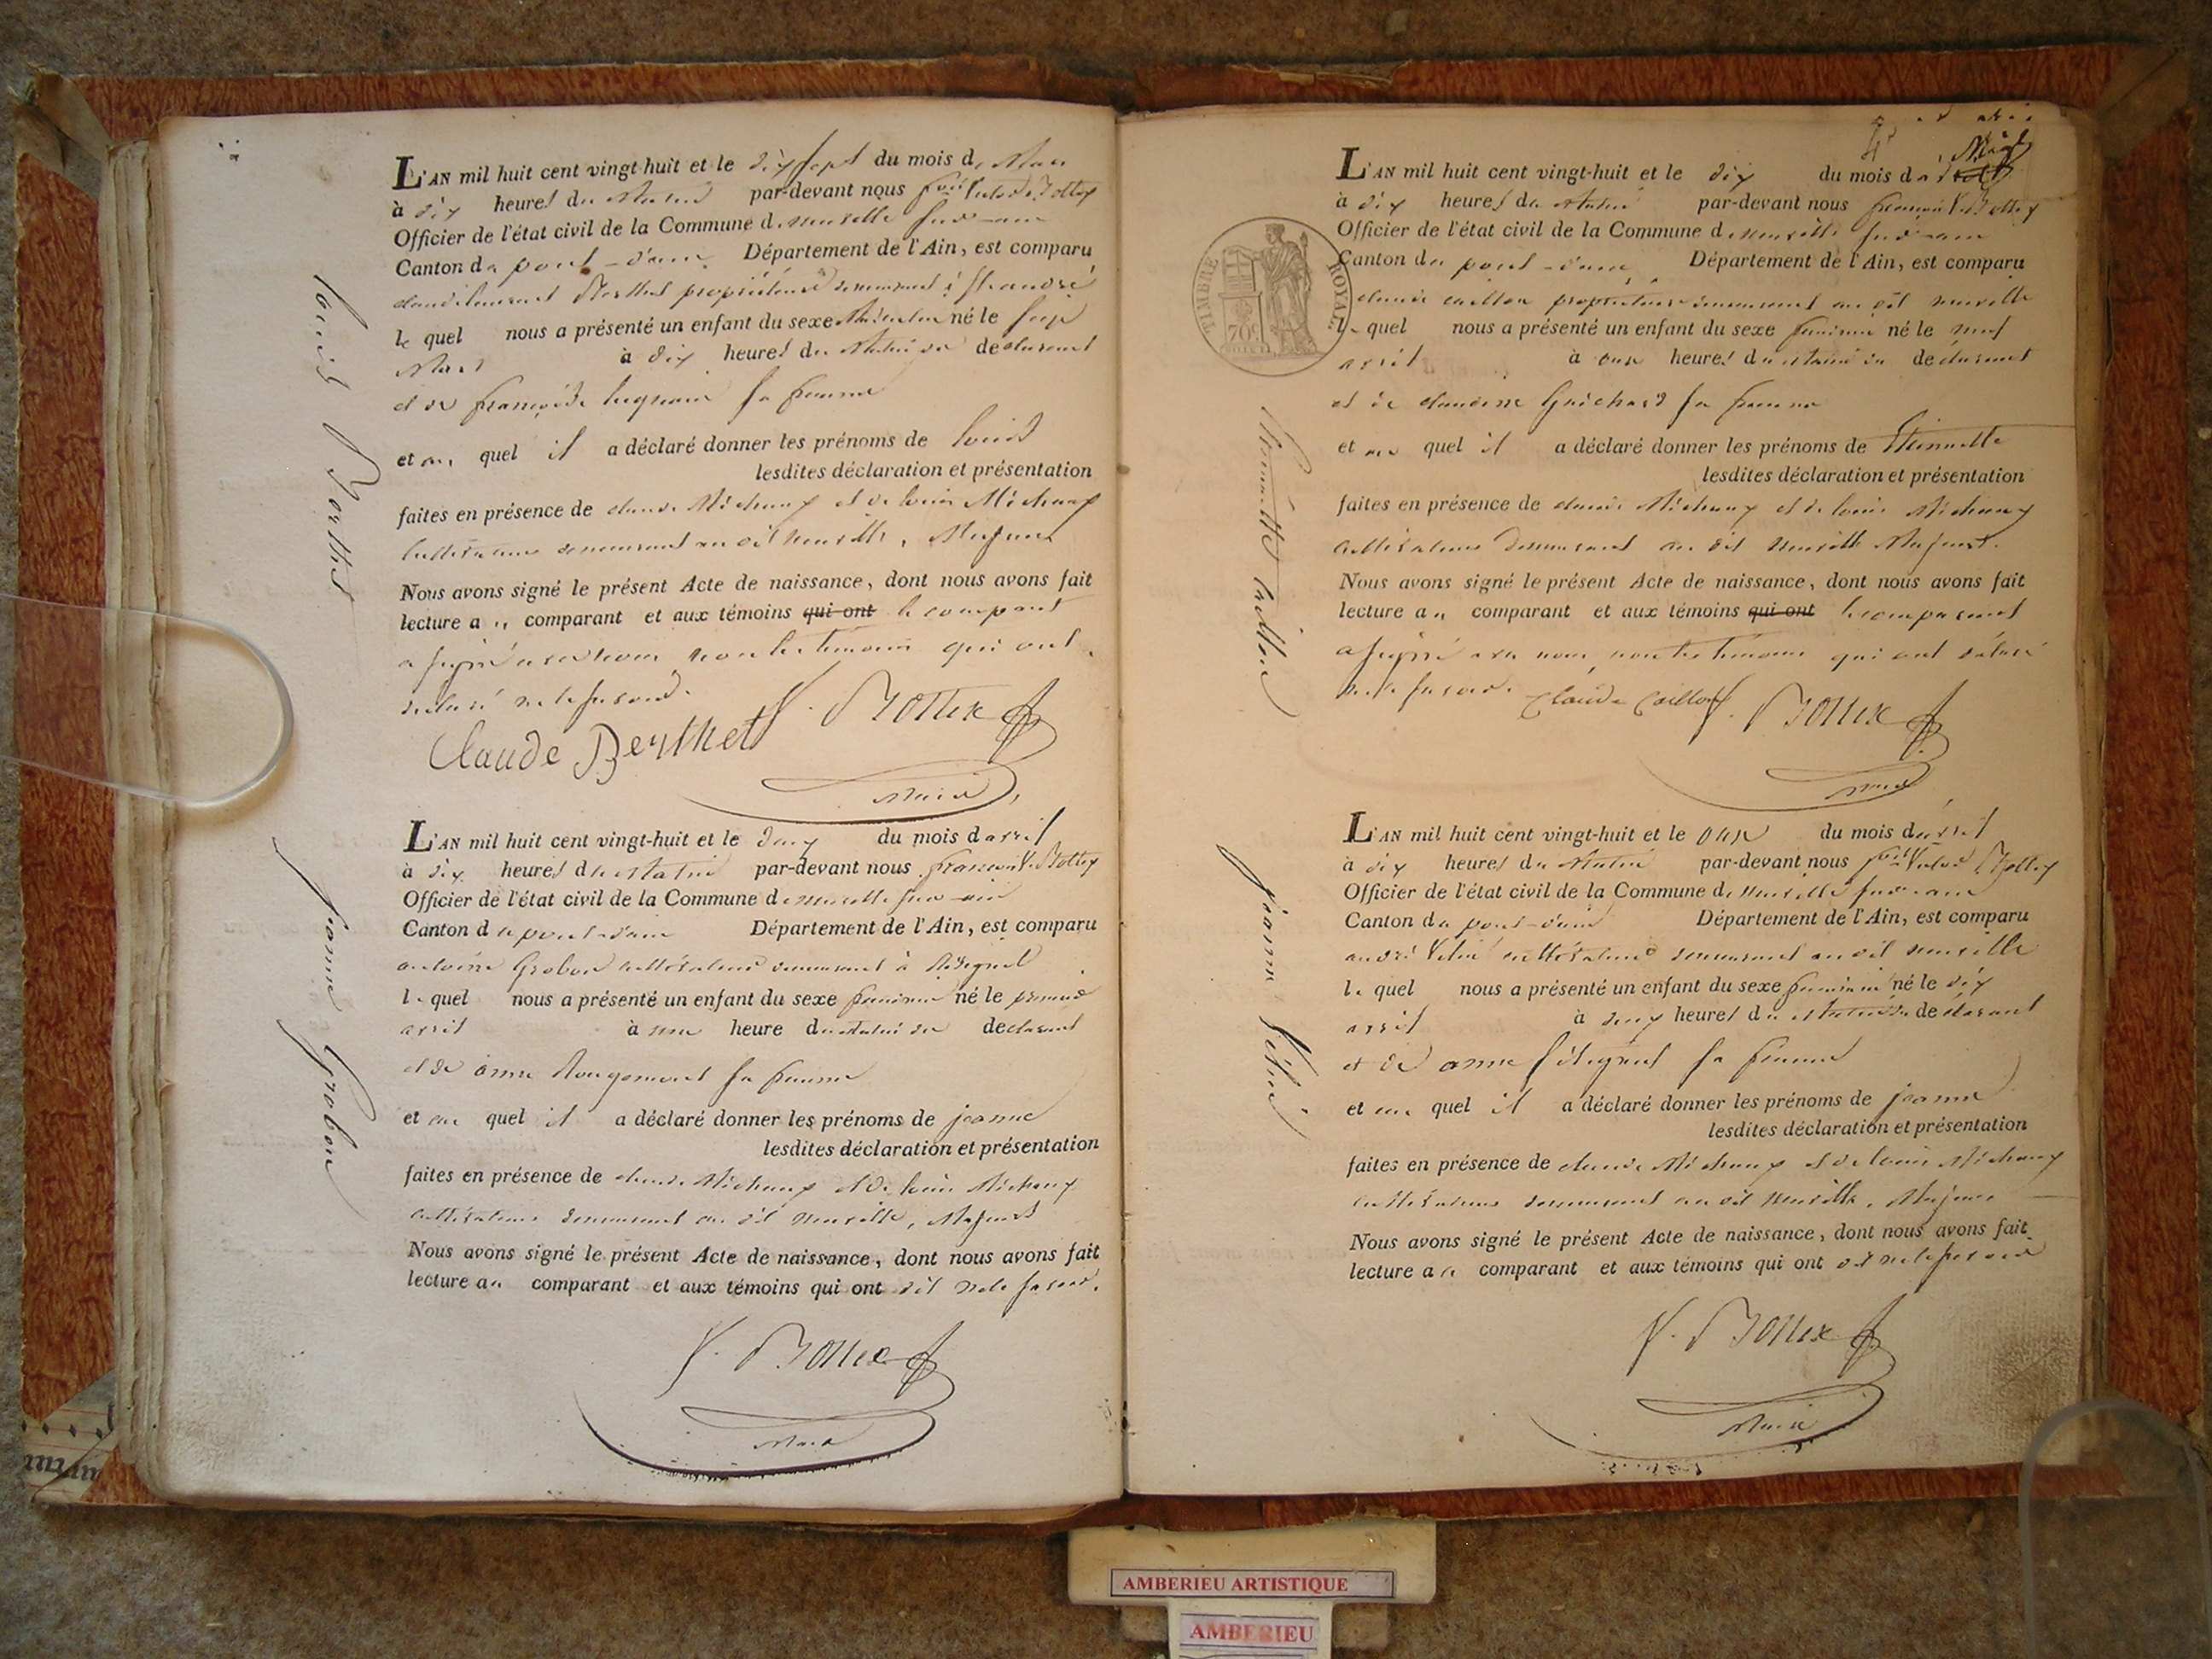 L'AN mil huit cent vingt-huit et le dix sept du mois de Mars
à dix heures du Matin par-devant nous
Officier de l'état civil de la Commune de neuville sur ain
Canton de pont-d'ain Département de l'Ain, est comparu
propriétaire demeurant à St andré
le quel nous a présenté un enfant du sexe Masculin né le
Mars à dix heures du Matin de declarant
et de françoise sa femme
et au quel il a déclaré donner les prénoms de louis
lesdites déclaration et présentation
faites en présence de claude Michaux et de louis Michaux
cultivateurs demeurant au dit neuville, Majeurs
Nous avons signé le présent Acte de naissance, dont nous avons fait
lecture au comparant et aux témoins qui ont le comparant
a signé avec nous non les témoins qui ont
declaré ne le savoir.
Claude Berthet V. Bottex
Maire
Louis Berthet
L'AN mil huit cent vingt-huit et le deux du mois d avril
à dix heures du Matin par-devant nous françois V. Bottex
Officier de l'état civil de la Commune de neuville sur ain
Canton de pont-d'ain Département de l'Ain, est comparu
antoine Grobon cultivateur demeurant à
le quel nous a présenté un enfant du sexe feminin né le premier
avril à une heure du matin de declarant
et de anne Rougemont sa femme
et au quel il a déclaré donner les prénoms de jeanne
lesdites déclaration et présentation
faites en présence de claude Michaux et de louis Michaux
cultivateurs demeurant au dit neuville, Majeurs
Nous avons signé le présent Acte de naissance, dont nous avons fait
lecture au comparant et aux témoins qui ont dit ne le savoir.
V. Bottex
Maire
jeanne Grobon
4
L'AN mil huit cent vingt-huit et le dix du mois d avril
à dix heures du Matin par-devant nous françois V. Bottex
Officier de l'état civil de la Commune de neuville sur ain
Canton de pont-d'ain Département de l'Ain, est comparu
claude caillon propriétaire demeurant au dit neuville
le quel nous a présenté un enfant du sexe feminin né le neuf
avril à onze heures du matin de declarant
et de claudine Guichard sa femme
et au quel il a déclaré donner les prénoms de Etiennette
lesdites déclaration et présentation
faites en présence de claude Michaux et de louis Michaux
cultivateurs demeurant au dit neuville Majeurs.
Nous avons signé le présent Acte de naissance, dont nous avons fait
lecture au comparant et aux témoins qui ont le comparant
a signé avec nous, non les témoins qui ont déclaré
ne le savoir. Claude Caillon V. Bottex
Maire
TIMBRE ROYAL
70c
Etiennette caillon
L'AN mil huit cent vingt-huit et le onze du mois d'avril
à dix heures du Matin par-devant nous
Officier de l'état civil de la Commune de neuville sur ain
Canton de pont-d'ain Département de l'Ain, est comparu
andré cultivateur demeurant au dit neuville
le quel nous a présenté un enfant du sexe feminin né le dix
avril à deux heures du matin de declarant
et de anne sa femme
et au quel il a déclaré donner les prénoms de jeanne
lesdites déclaration et présentation
faites en présence de claude Michaux et de louis Michaux
cultivateurs demeurant au dit neuville, Majeurs
Nous avons signé le présent Acte de naissance, dont nous avons fait
lecture au comparant et aux témoins qui ont dit ne le savoir
V. Bottex
Maire
jeanne
AMBERIEU ARTISTIQUE
AMBERIEU